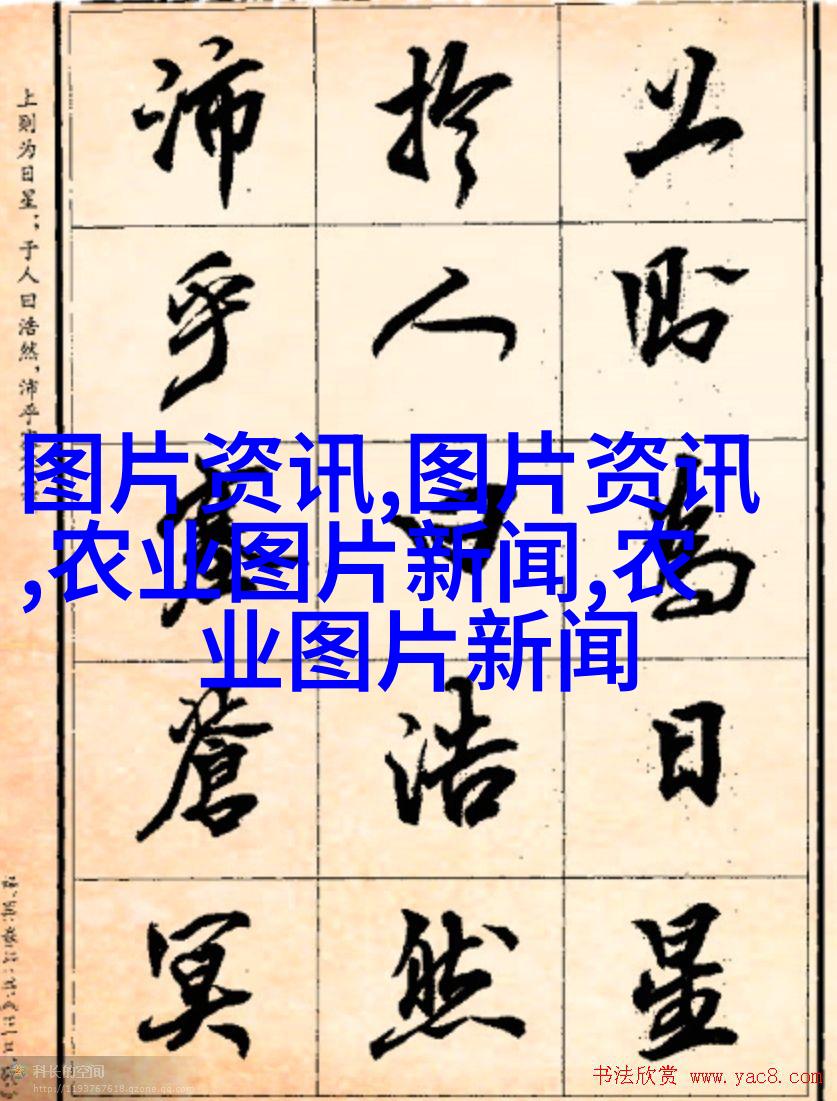 上则为日星
於人曰浩然
沛乎塞蒼冥
上则为日星；于人曰浩然，沛乎
图片资讯,图片资讯
,农业图片新闻,农
业图片新闻
科长的空间
http://1193767618.qzone.qq.com
书法欣赏 www.yac8.com